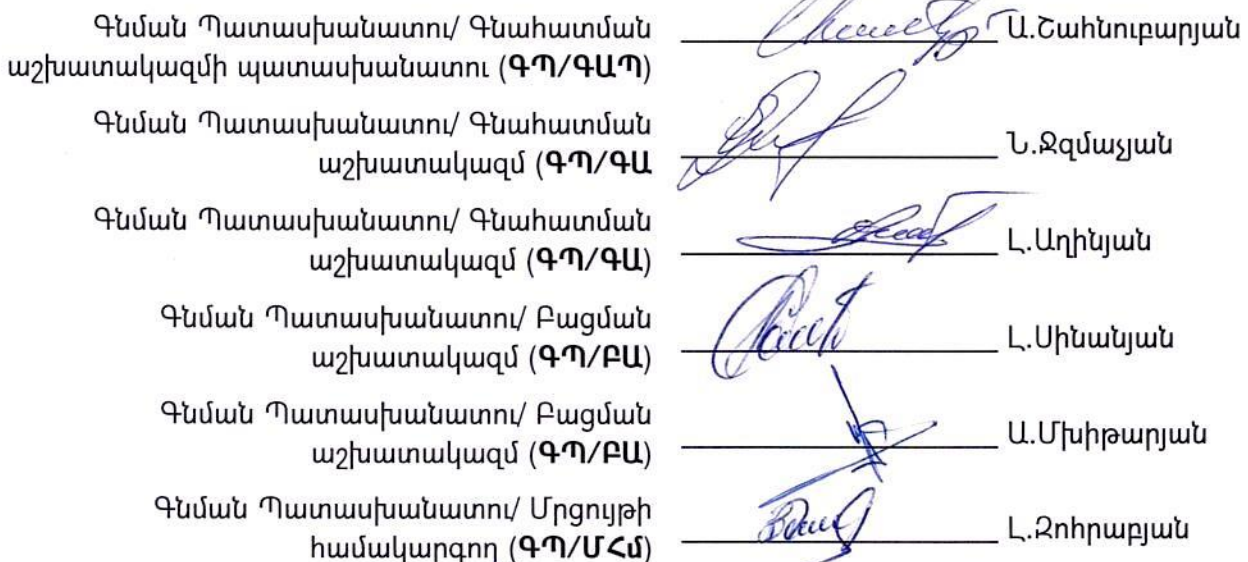 Գնման Պատասխանատու/ Գնահատման
աշխատակազմի պատասխանատու (ԳՊ/ԳԱՊ)
Ա.Շահնուբարյան
Գնման Պատասխանատու/ Գնահատման
աշխատակազմ (ԳՊ/ԳԱ
Ն.Ջզմաչյան
Գնման Պատասխանատու/ Գնահատման
աշխատակազմ (ԳՊ/ԳԱ)
Լ.Աղինյան
Գնման Պատասխանատու/ Բացման
աշխատակազմ (ԳՊ/ԲԱ)
Լ.Սինանյան
Գնման Պատասխանատու/ Բացման
աշխատակազմ (ԳՊ/ԲԱ)
Ա.Մխիթարյան
Գնման Պատասխանատու/ Մրցույթի
համակարգող (ԳՊ/ՄՀմ)
Լ.Զոհրաբյան